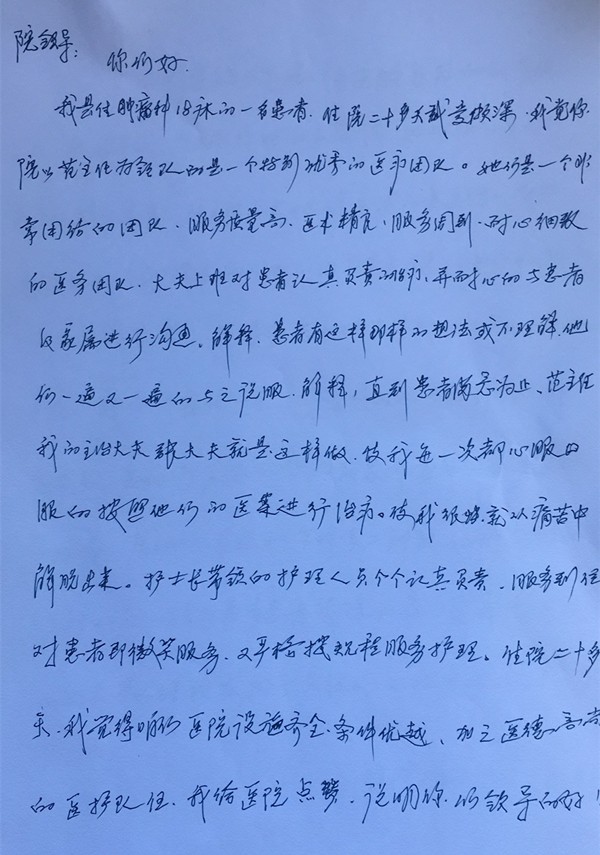 院领导：
你们好.
我是住肿瘤科18床的一名患者.住院二十多天我受颇深.我觉你
院以范主任为领队的是一个特别优秀的医疗团队。她们是一个非
常团结的团队.服务质量高.医术精良.服务周到.耐心细致
的医务团队.大夫上班对患者认真负责的治疗,并耐心的与患者
及家属进行沟通。解释.患者有这样那样的想法或不理解.他
们一遍又一遍的与之说服.解释,直到患者满意为止.范主任
我的主治大夫张大夫就是这样做.使我每一次都心服口
服的按照他们的医案进行治疗。使我很快就从痛苦中
解脱出来。护士长带领的护理人员个个认真负责.服务到位
对患者即微笑服务.又严格按规程服务护理。住院二十多
天.我觉得咱们医院设施齐全.条件优越、加之医德高尚
的医护队伍.我给医院点赞.说明你们领导的好！